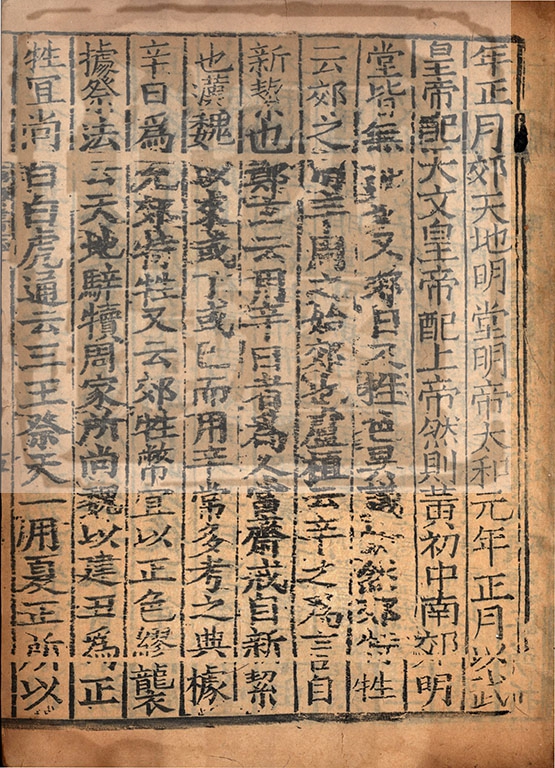 年正月郊天地明堂明帝太和元年正月以武
皇帝配天文皇帝配上帝然則黃初中南郊明
堂皆無又郊日及牲色異議郊特牲
云郊之用之始郊也盧植云辛之為言自
新絜也鄭玄云用辛日者為人當齋戒自新絜
也漢魏以來或丁或已而用辛常多考之典據
辛日為允郊特牲又云郊牲幣宜以正色繆襲
據祭法云天地騂犢周家所尚魏以建丑為正
牲宜尚白白虎通云三王祭天一用夏正所以